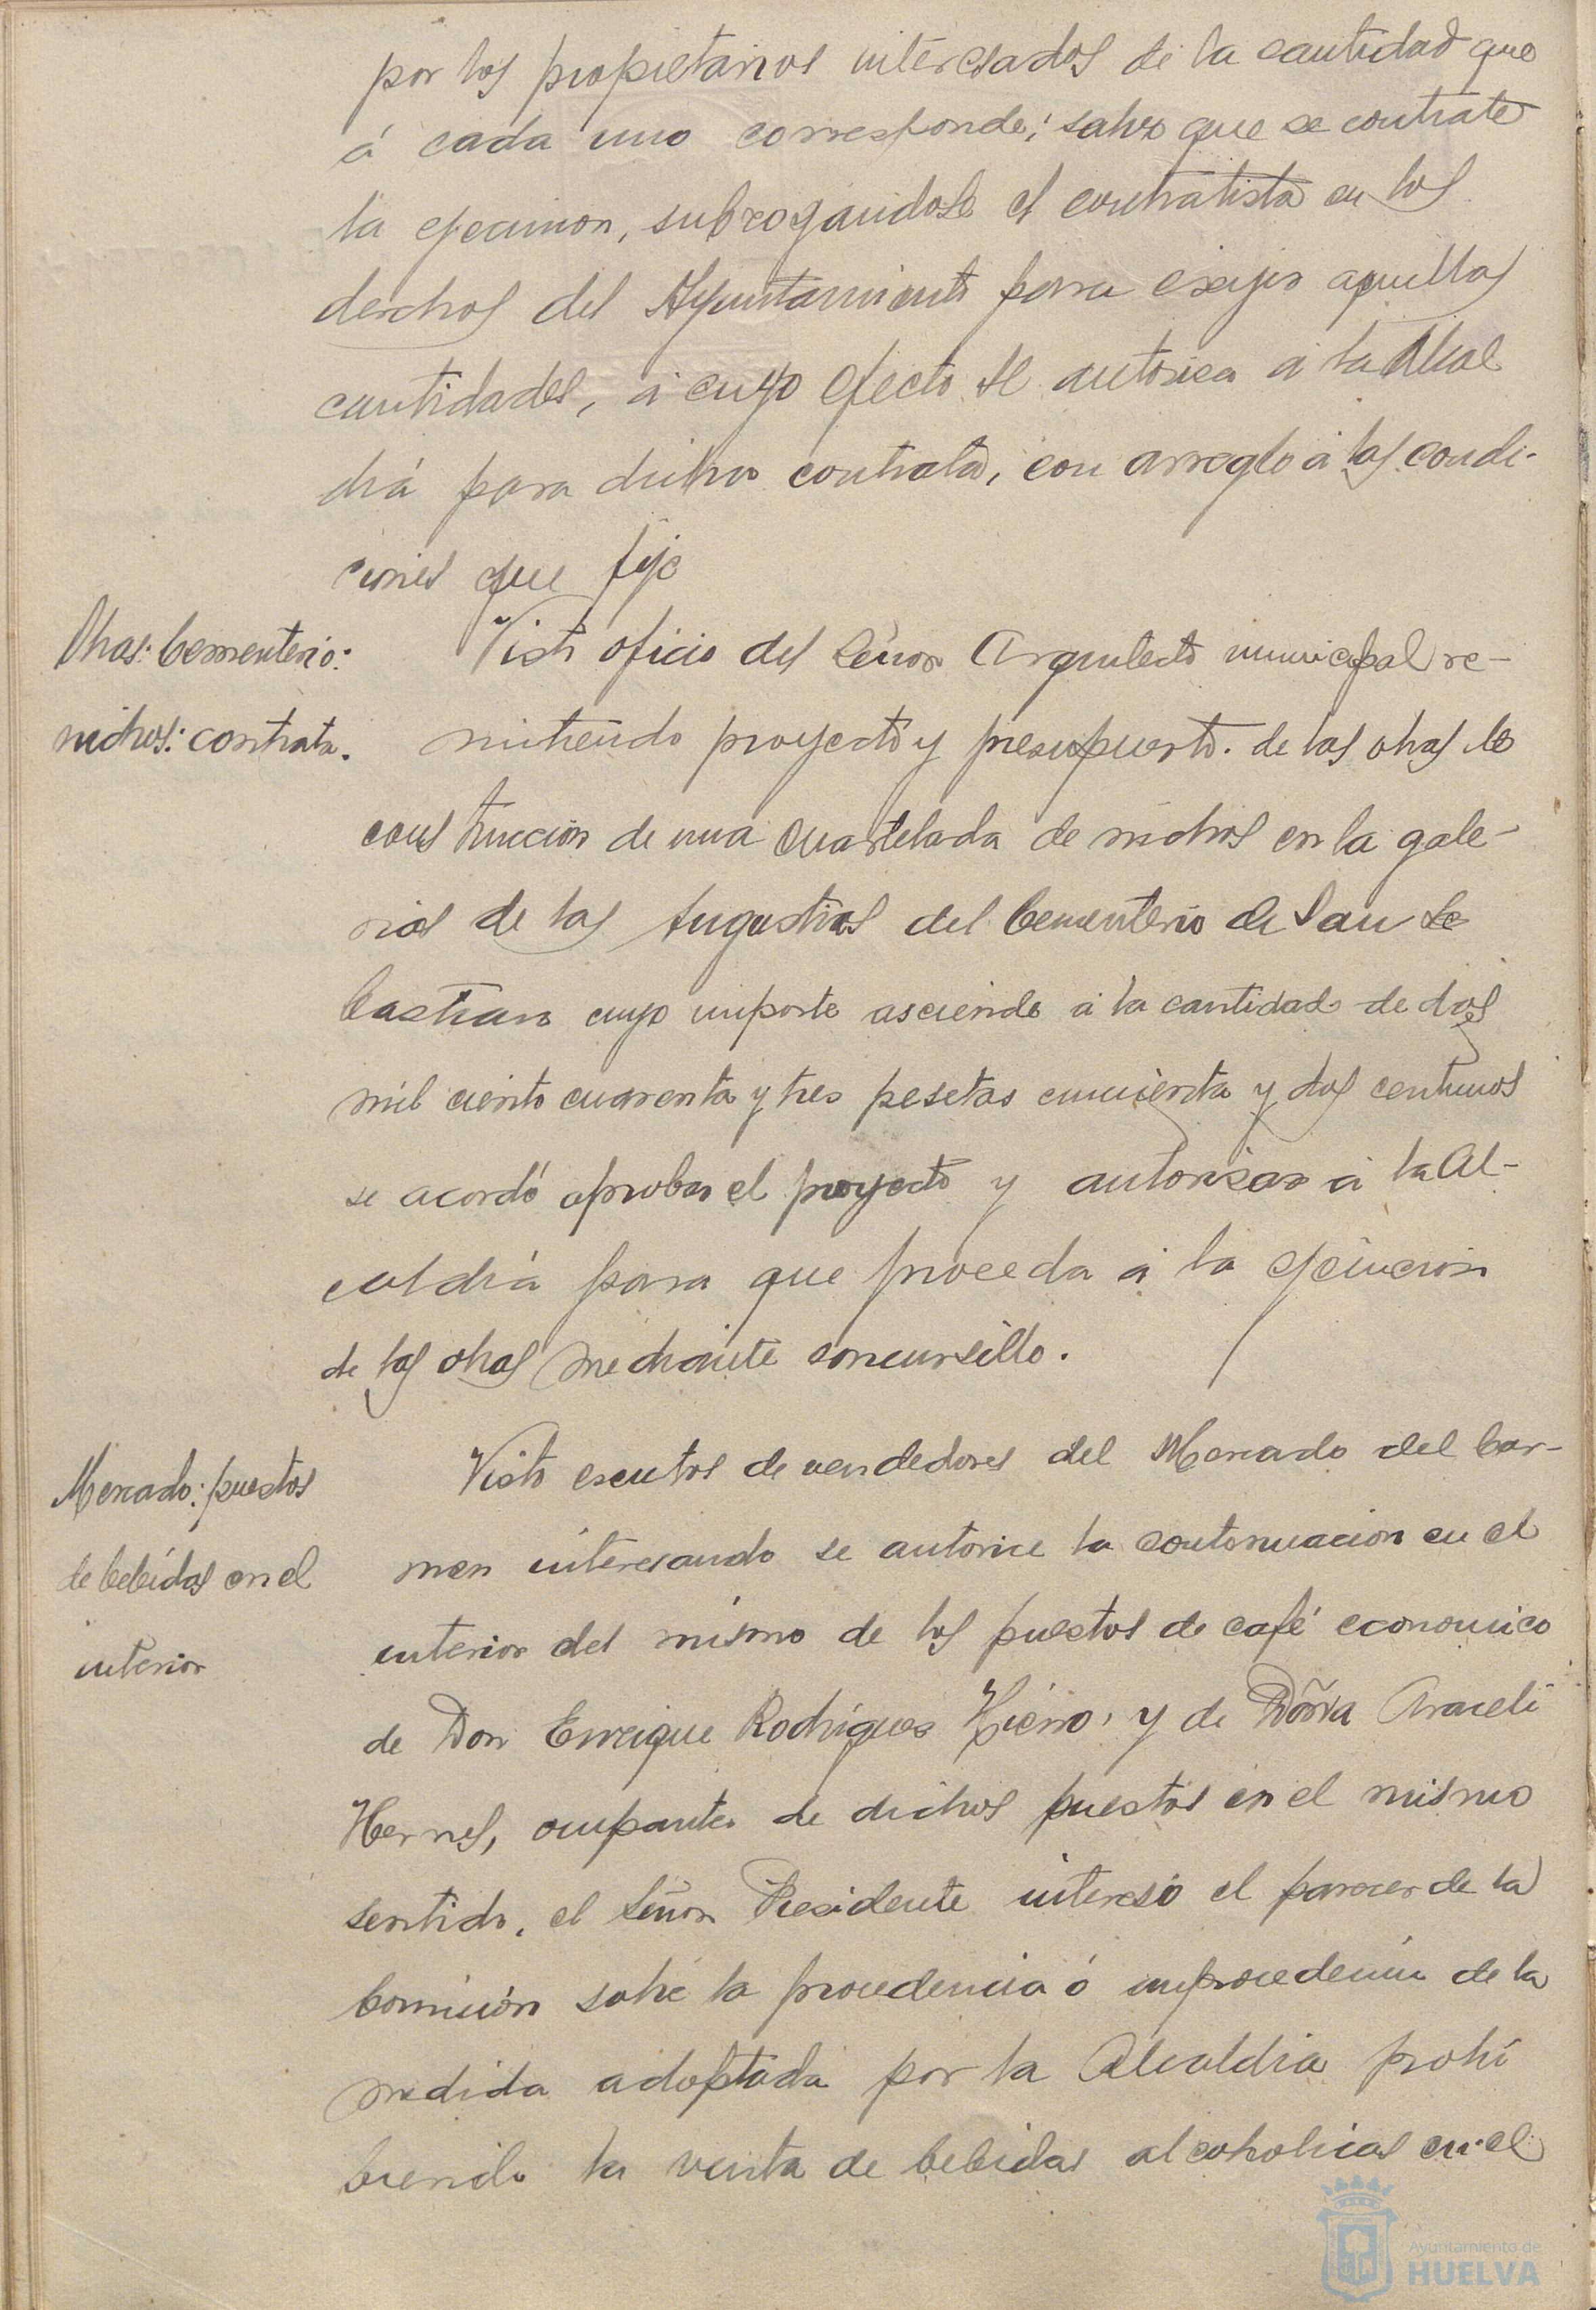 por los propietarios interesados de la cantidad que
á cada uno corresponde; salvo que se contrate
la ejecucion, subrogandose el contratista en los
derechos del Ayuntamiento para exigir aquellas
cantidades, á cuyo efecto se autoriza á la Alcal
dia para dicho contrato, con arreglo á las condi-
ciones que fije
Obras: Cementerio:
nichos: contrata.
Visto oficio del Señor Arquitecto municipal re-
mitiendo proyecto y presupuesto de las obras de
construccion de una cuartelada de nichos en la gale-
rias de las Angustias del Cementerio de San Se
bastian cuyo importe asciende á la cantidad de dos
mil ciento cuarenta y tres pesetas cincuenta y dos centimos
se acordó aprobar el proyecto y autorizar á la Al-
caldia para que proceda á la ejecucion
de las obras mediante concursillo.
Mercado: puestos
de bebidas en el
interior
Visto escritos de vendedores del Mercado del Car-
men interesando se autorice la continuacion en el
interior del mismo de los puestos de café economico
de Don Enrique Rodriguez Hierro, y de Doña Araceli
Hernes, ocupantes de dichos puestos en el mismo
sentido, el Señor Presidente interesó el parecer de la
Comision sobre la procedencia ó improcedencia de la
medida adoptada por la Alcaldia prohi
biendo la venta de bebidas alcoholicas en el
Ayuntamiento de
HUELVA